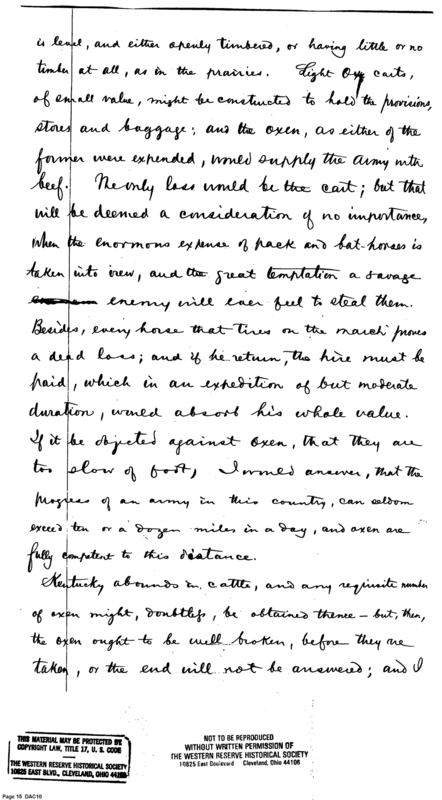 is level, and either openly timbered, or having little or no
timber at all, as in the prairies. Light Ox carts,
of small value, might be constructed to hold the provisions,
stores and baggage; and the oxen, as either of the
former were expended, would supply the army with
beef. The only loss would be the cart; but that
will be deemed a consideration of no importance,
when the enormous expense of pack and bat-horses is
taken into view, and the great temptation a savage
enemy will ever feel to steal them.
Besides, every horse that tires on the march proves
a dead loss; and if he return, the hire must be
paid, which in an expedition of but moderate
duration, would absorb his whole value.
If it be objected against oxen, that they are
too slow of foot, I would answer, that the
progress of an army in this country, can seldom
exceed ten or a dozen miles in a day, and oxen are
fully competent to this distance.
Kentucky abounds in cattle, and any requisite number
of oxen might, doubtless, be obtained thence - but, then,
the oxen ought to be well broken, before they are
taken, or the end will not be answered; and I
THIS MATERIAL MAY BE PROTECTED BY
COPYRIGHT LAW, TITLE 17, U. S. CODE
THE WESTERN RESERVE HISTORICAL SOCIETY
10825 EAST BLVD., CLEVELAND, OHIO 44106
NOT TO BE REPRODUCED
WITHOUT WRITTEN PERMISSION OF
THE WESTERN RESERVE HISTORICAL SOCIETY
10825 East Boulevard Cleveland, Ohio 44106
Page 15 DAC10